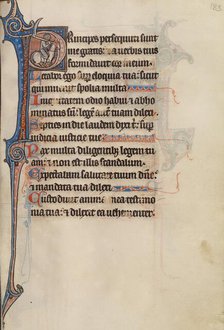 Principes persequuti sunt
me gratis: & a verbis tuis
formidavit cor meum.
Letabor ego sup eloquia tua: sicut
qui invenit spolia multa
Iniquitatem odio habui & abho
minatus sum: legem autem tuam dilexi
Septies in die laudem dixi t: sup
iudicia iusticie tue
Pax multa diligentibus legem tu
am: & non est illis scandalum
Expectabam salutare tuum dne:
& mandata tua dilexi
Custodivit anima mea testimo
nia tua: & dilexit ea vehementer